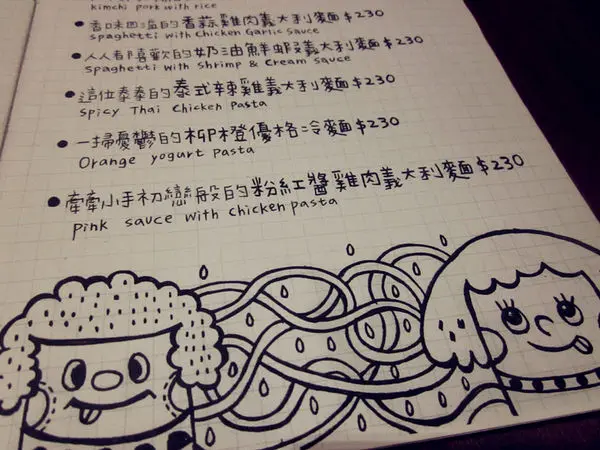 kimchi pork with rice
● 香味四溢的香蒜雞肉義大利麵$230
spaghetti with Chicken Garlic Sauce
● 人人都喜歡的奶油鮮蝦義大利麵$230
spaghetti with Shrimp & Cream sauce
● 這位泰泰的泰式辣雞義大利麵$230
Spicy Thai Chicken Pasta
● 一掃憂鬱的柳橙優格冷麵$230
Orange yogurt pasta
● 牽牽小手初戀般的粉紅醬雞肉義大利麵$230
pink sauce with chicken pasta